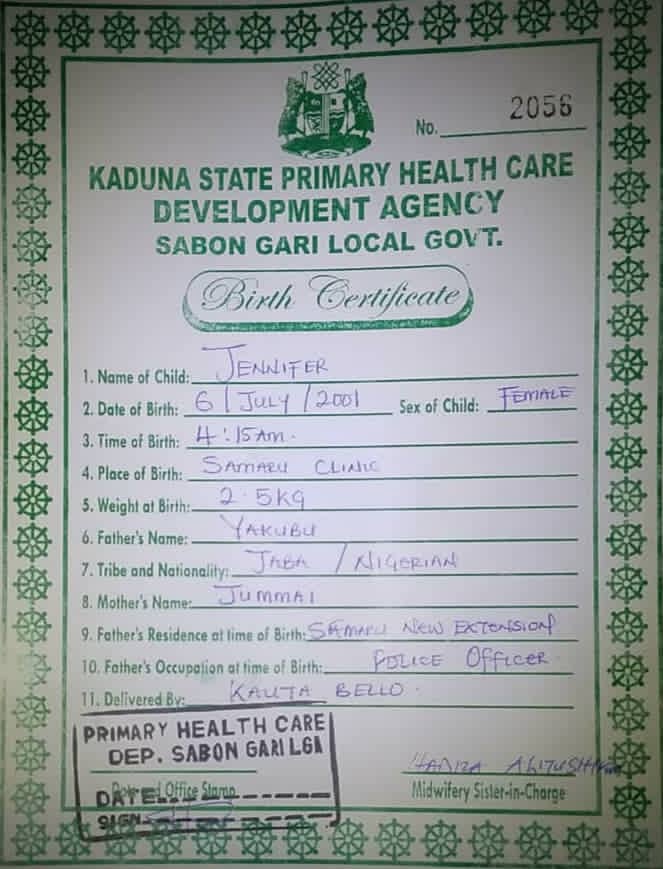 No. 2056
KADUNA STATE PRIMARY HEALTH CARE
DEVELOPMENT AGENCY
SABON GARI LOCAL GOVT.
Birth Certificate
1. Name of Child: JENNIFER
2. Date of Birth: 6 / JULY / 2001 Sex of Child: FEMALE
3. Time of Birth: 4:15AM.
4. Place of Birth: SAMARU CLINIC
5. Weight at Birth: 2.5KG
6. Father's Name: YAKUBU
7. Tribe and Nationality: JABA / NIGERIAN
8. Mother's Name: JUMMAI
9. Father's Residence at time of Birth: SAMARU NEW EXTENSION
10. Father's Occupation at time of Birth: POLICE OFFICER
11. Delivered By: KAUTA BELLO.
PRIMARY HEALTH CARE
DEP. SABON GARI LGA
Office Stamp
DATE
SIGN
Midwifery Sister-in-Charge